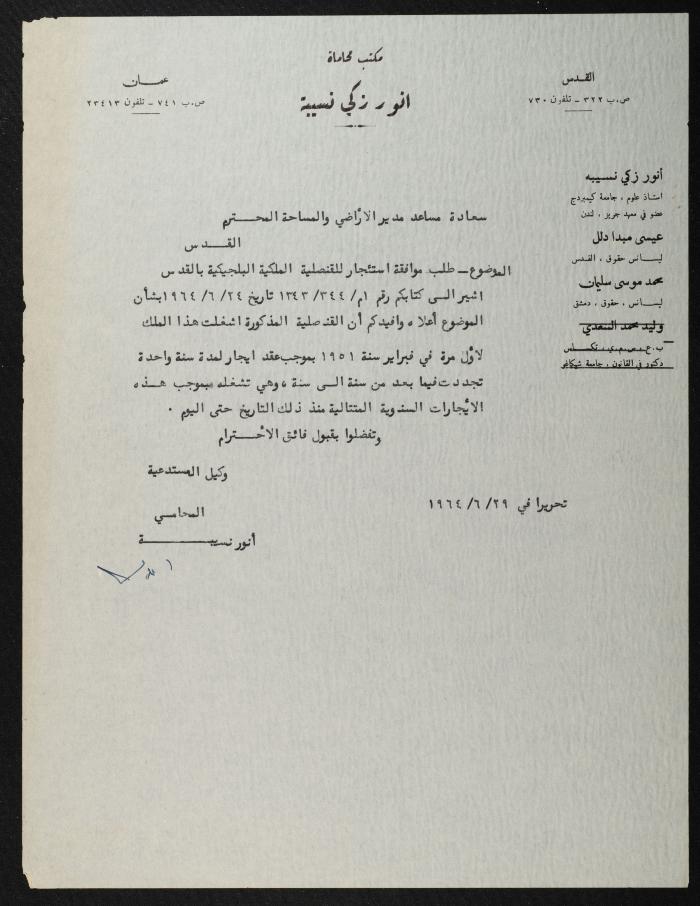 مكتب محاماة
انور زكي نسيبة
القدس
ص.ب ٣٢٢ - تلفون ٧٣٠
عمان
ص.ب ٧٤١ - تلفون ٢٣٤١٣
أنور زكي نسيبه
استاذ علوم ، جامعة كيمبردج
عضو في معهد جريز ، لندن
عيسى مبدا دلل
ليسانس حقوق ، القدس
محمد موسى سليمان
ليسانس ، حقوق ، دمشق
وليد محمد السعدي
ب.ع.، تكساس
دكتور في القانون ، جامعة شيكاغو
سعادة مساعد مدير الأراضي والمساحة المحترم
القدس
الموضوع - طلب موافقة استئجار للقنصلية الملكية البلجيكية بالقدس
اشير الى كتابكم رقم ١م/٣٤٤/١٣٤٣ تاريخ ١٩٦٤/٦/٢٤ بشأن
الموضوع أعلاه وافيدكم أن القنصلية المذكورة اشغلت هذا الملك
لأول مرة في فبراير سنة ١٩٥١ بموجب عقد ايجار لمدة سنة واحدة
تجددت فيما بعد من سنة الى سنة ، وهي تشغله بموجب هذه
الأيجارات السنوية المتتالية منذ ذلك التاريخ حتى اليوم .
وتفضلوا بقبول فائق الأحترام
وكيل المستدعية
تحريرا في ١٩٦٤/٦/٢٩
المحامي
أنور نسيبة